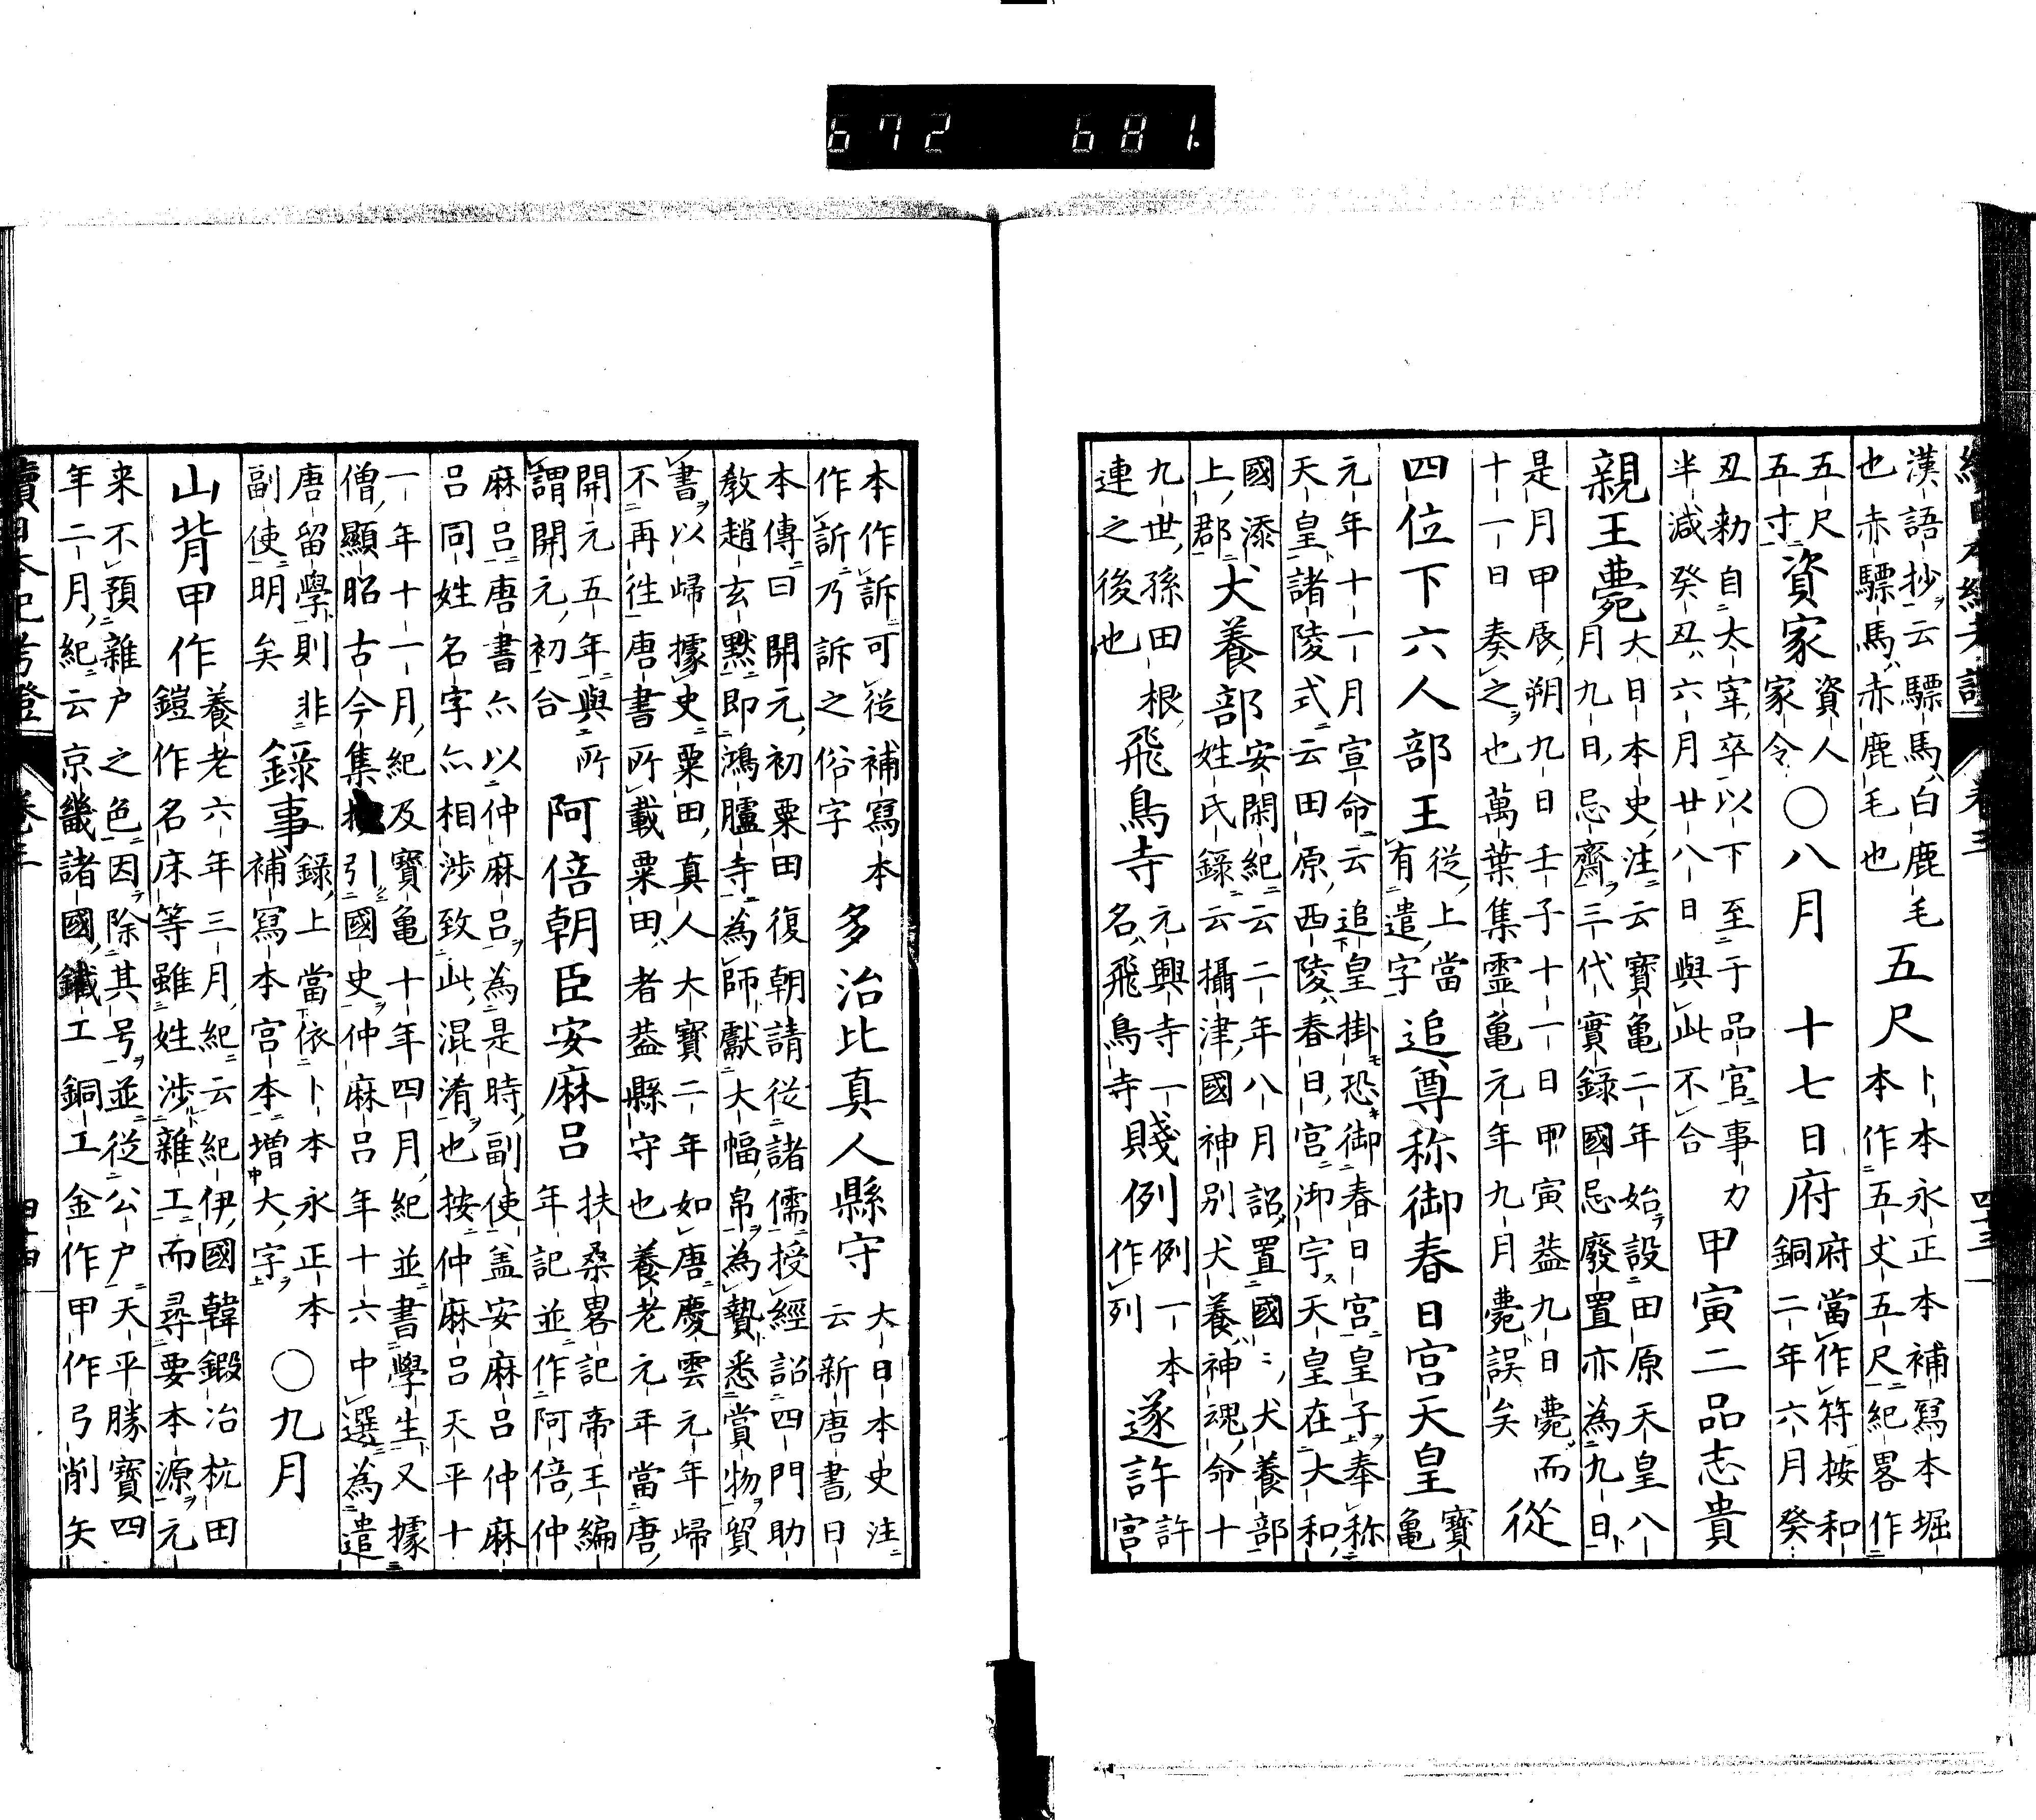 續日本紀考證 卷三 四十三
漢語抄云驃馬白鹿毛也赤驃馬赤鹿毛也 五尺 卜本永正本補寫本堀本作五丈五尺紀畧作
五尺五寸 資家 資人家令 ○八月 十七日府 府當作符按和銅二年六月癸
丑勑自太宰卒以下至于品官事力半減癸丑六月廿八日與此不合 甲寅二品志貴
親王薨 大日本史注云寶亀二年始設田原天皇八月九日忌齋三代實録國忌廢置亦為九日
是月甲辰朔九日壬子十一日甲寅葢九日薨而十一日奏之也萬葉集霊亀元年九月薨誤矣 從
四位下六人部王 從上當有遣字 追尊称御春日宮天皇 寶亀
元年十一月宣命云追皇掛恐御春日宮皇子奉称天皇諸陵式云田原西陵春日宮御宇天皇在大和
國添上郡 犬養部 安閑紀云二年八月詔置國〻犬養部姓氏録云攝津國神別犬養神魂命十
九世孫田根連之後也 飛鳥寺 元興寺一名飛鳥寺 賤例 例一本作列 遂許 許宮
本作訴可從補寫本作訢乃訴之俗字 多治比真人縣守 大日本史注云新唐書日
本傳曰開元初粟田復朝請從諸儒授經詔四門助教趙玄默即鴻臚寺為師獻大幅帛為贄悉賞物貿
書以歸據史粟田真人大寶二年如唐慶雲元年歸不再徃唐書所載粟田者葢縣守也養老元年當唐
開元五年與所謂開元初合 阿倍朝臣安麻呂 扶桑畧記帝王編年記並作阿倍仲
麻呂唐書亦以仲麻呂為是時副使盖安麻呂仲麻呂同姓名字亦相渉致此混淆也按仲麻呂天平十
一年十一月紀及寶亀十年四月紀並書學生又據僧顯昭古今集抄引國史仲麻呂年十六中選為遣
唐留學則非副使明矣 録事 録上當依卜本永正本補寫本宮本増大字 ○九月
山背甲作 養老六年三月紀云紀伊國韓鍛冶杭田鎧作名床等雖姓渉雜工而尋要本源元
来不預雜户之色因除其号並從公户天平勝寶四年二月紀云京畿諸國鐵工銅工金作甲作弓削矢
續日本紀考證 卷三 四十四
672 681.